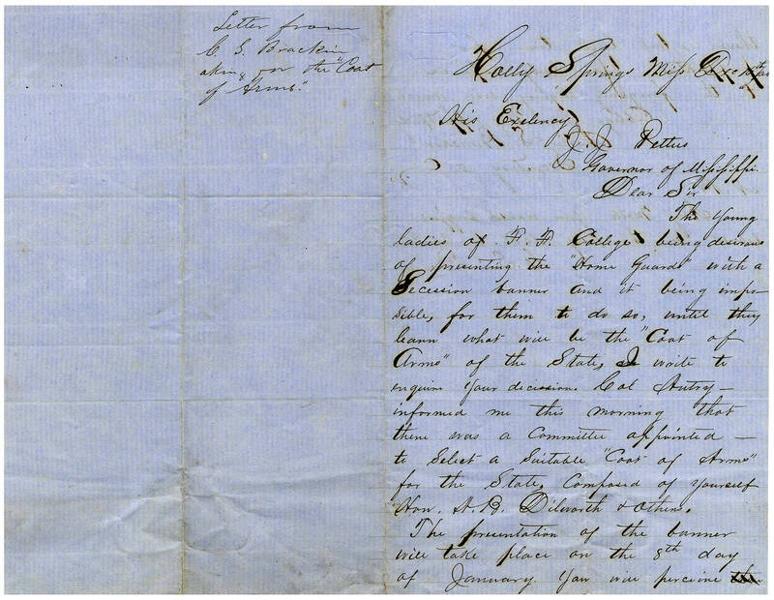 Letter from
C S Brackin
aking for the "Coat
of Arms."
Holly Springs Miss Dec
His Exelency
J. J. Pettus
Governor of Mississippi
Dear Sir
The Young
ladies of F. F. College being desirous
of presenting the "Home Guards" with a
Secession banner and it being impo-
sible, for them to do so, until they
learn what will be the "Coat of
Arms" of the State, I write to
enquire your decission. Col Autry —
informed me this morning that
there was a Committee appointed —
to Select a Suitable "Coat of Arms"
for the State, Composed of yourself
Hon. A. B. Dilworth & others.
The presentation of the banner
will take place on the 8th day
of January. You will perceive